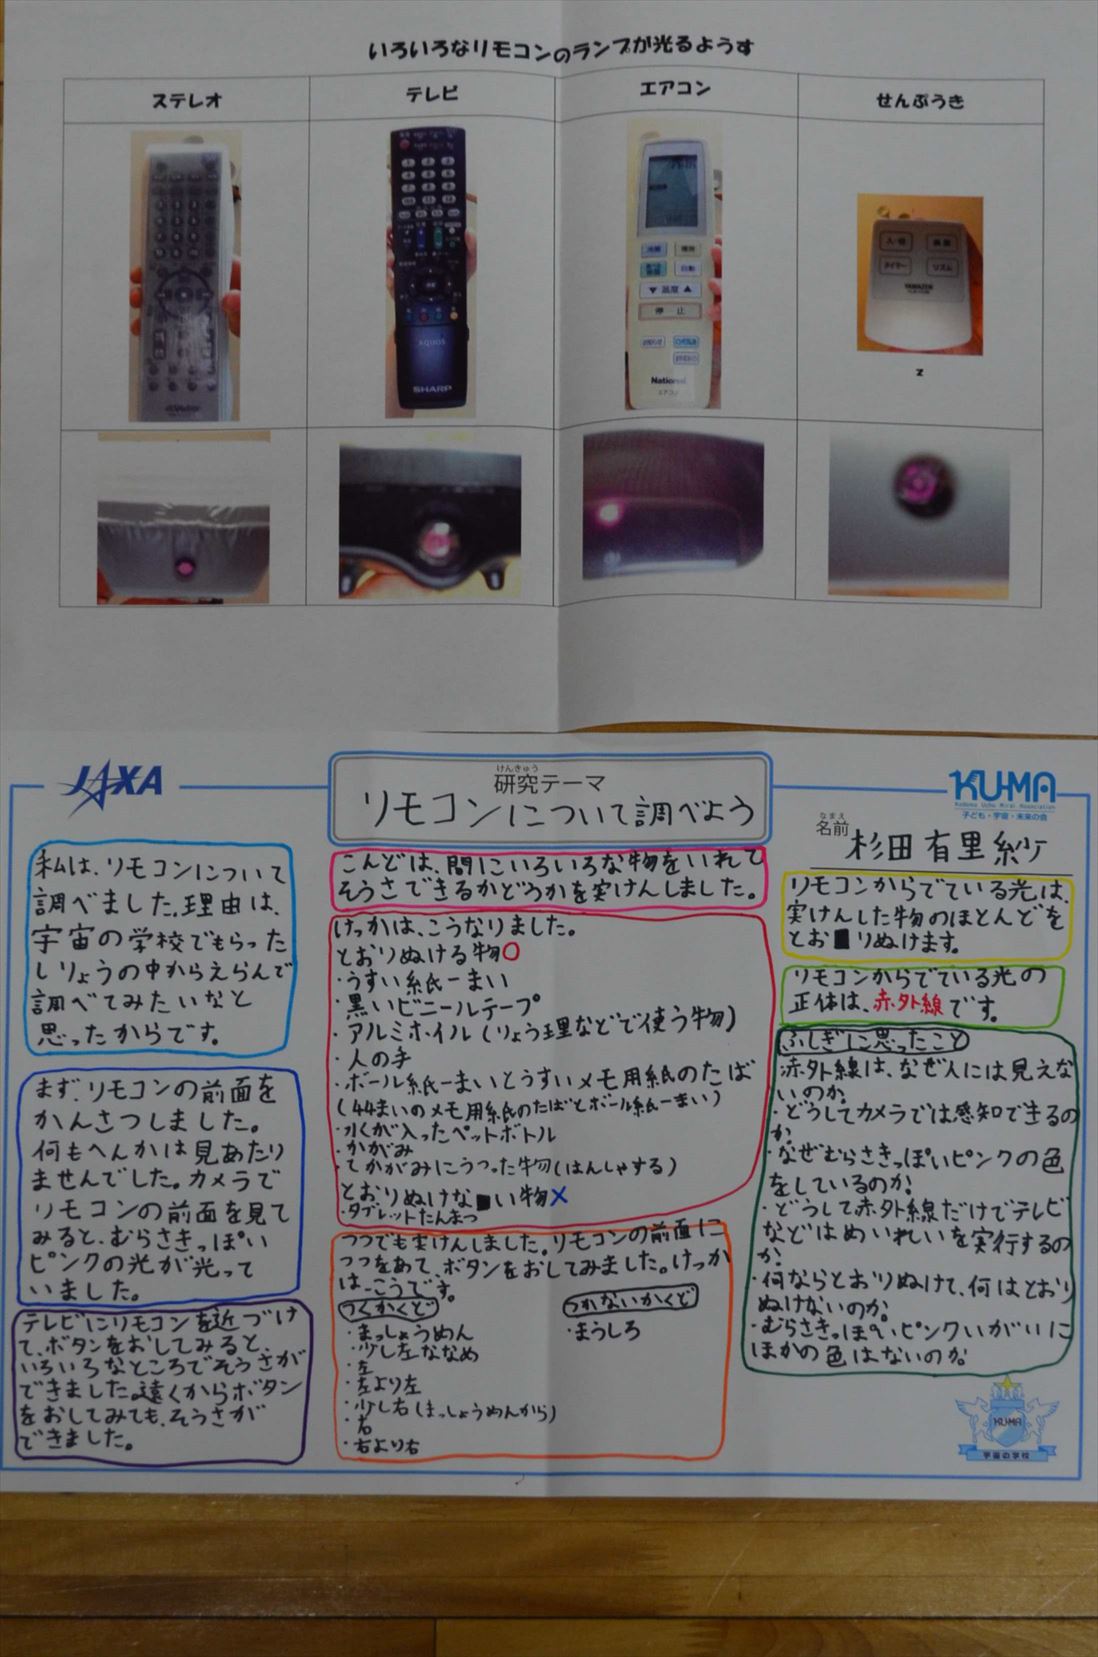 いろいろなリモコンのランプが光るようす
ステレオ
テレビ
エアコン
せんぷうき
AQUOS
SHARP
自動
▼ 温度 ▲
停 止
National
エアコン
入・切
タイマー
リズム
YAMAZEN
z
JAXA
けんきゅう
研究テーマ
リモコンについて調べよう
KU-MA
子ども・宇宙・未来の会
なまえ
名前
杉田有里紗
私は、リモコンについて
調べました。理由は、
宇宙の学校でもらった
しりょうの中からえらんで
調べてみたいなと
思ったからです。
まず、リモコンの前面を
かんさつしました。
何もへんかは見あたり
ませんでした。カメラで
リモコンの前面を見て
みると、むらさきっぽい
ピンクの光が光って
いました。
テレビにリモコンを近づけ
て、ボタンをおしてみると、
いろいろなところでそうさが
できました。遠くからボタン
をおしてみても、そうさが
できました。
こんどは、間にいろいろな物をいれて
そうさできるかどうかを実けんしました。
けっかは、こうなりました。
とおりぬける物○
・うすい紙一まい
・黒いビニールテープ
・アルミホイル(りょう理などで使う物)
・人の手
・ボール紙一まいとうすいメモ用紙のたば
(44まいのメモ用紙のたばとボール紙一まい)
・水が入ったペットボトル
・かがみ
・てかがみにうつった物(はんしゃする)
とおりぬけない物×
・タブレットたんまつ
つつでも実けんしました。リモコンの前面に
つつをあて、ボタンをおしてみました。けっか
は、こうです。
つくかくど
・まっしょうめん
・少し左ななめ
・左
・左より左
・少し右(まっしょうめんから)
・右
・右より右
つかないかくど
・まうしろ
リモコンからでている光は、
実けんした物のほとんどを
とおりぬけます。
リモコンからでている光の
正体は、赤外線です。
ふしぎに思ったこと
赤外線は、なぜ人には見えな
いのか。
・どうしてカメラでは感知できるの
か。
・なぜむらさきっぽいピンクの色
をしているのか。
・どうして赤外線だけでテレビ
などはめいれいを実行するの
か。
・何ならとおりぬけて、何はとおり
ぬけないのか。
・むらさきっぽいピンクいがいに
ほかの色はないのか。
KU-MA
宇宙の学校